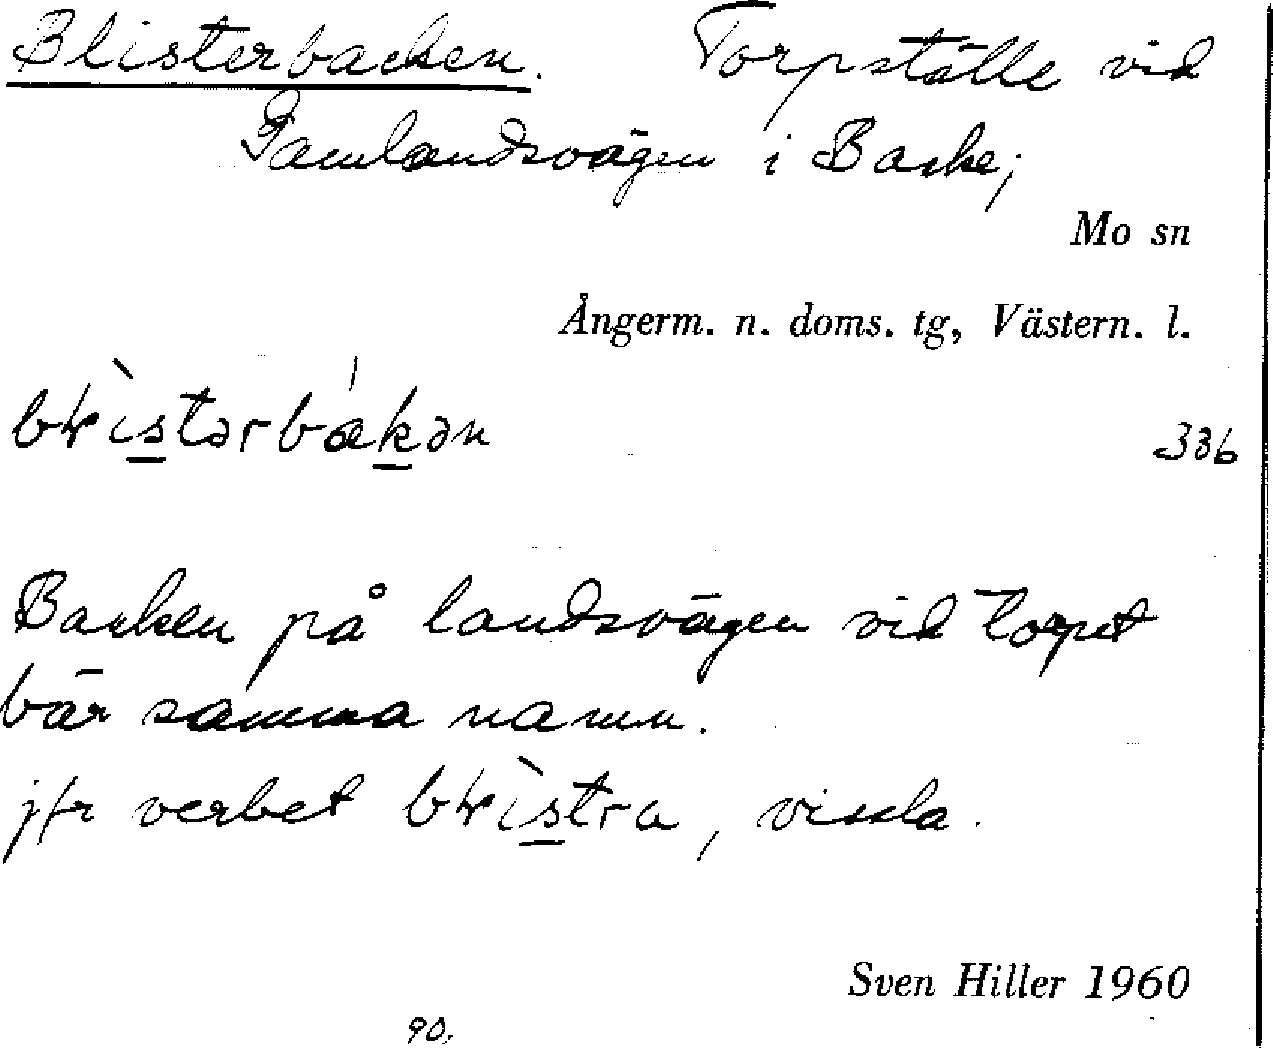 Blisterbacken. Torpställe vid
Gamlandsvägen i Backe;
Mo sn
Ångerm. n. doms. tg, Västern. l.
bɫìstərbákən
336
Backen på landsvägen vid torpet
bär samma namn.
jfr verbet bɫìstra, vissla.
Sven Hiller 1960
90.